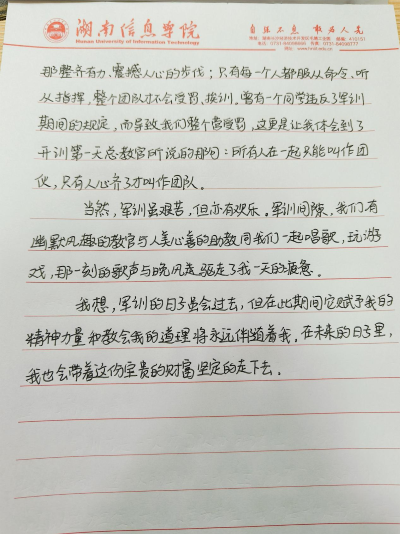 湖南信息学院
Hunan University of Information Technology
自强不息 敢为人先
那整齐有力、震撼人心的步伐；只有每一个人都服从命令、听
从指挥，整个团队才不会受罚、挨训。曾有一个同学违反了军训
期间的规定，而导致我们整个营受罚，这更是让我体会到了
开训第一天总教官所说的那句：所有人在一起只能叫作团
伙，只有人心齐了才叫作团队。
当然，军训虽艰苦，但亦有欢乐。军训间隙，我们有
幽默风趣的教官与人美心善的助教同我们一起唱歌，玩游
戏，那一刻的歌声与晚风走驱走了我一天的疲惫。
我想，军训的日子虽会过去，但在此期间它赋予我的
精神力量和教会我的道理将永远伴随着我。在未来的日子里，
我也会带着这份宝贵的财富坚定的走下去。